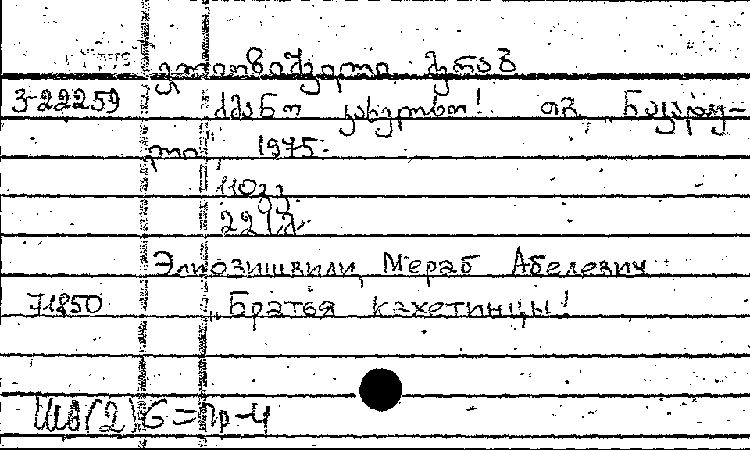 ელიოზიშვილი, მერაბ
3-22259 ძმანო კახელნო! თბ. ნაკადუ-
ლი, 1975.
110გვ.
Элиозишвили, Мераб Абелевич
71850 "Братья кахетинцы!
Ша(2)6=Пр-4